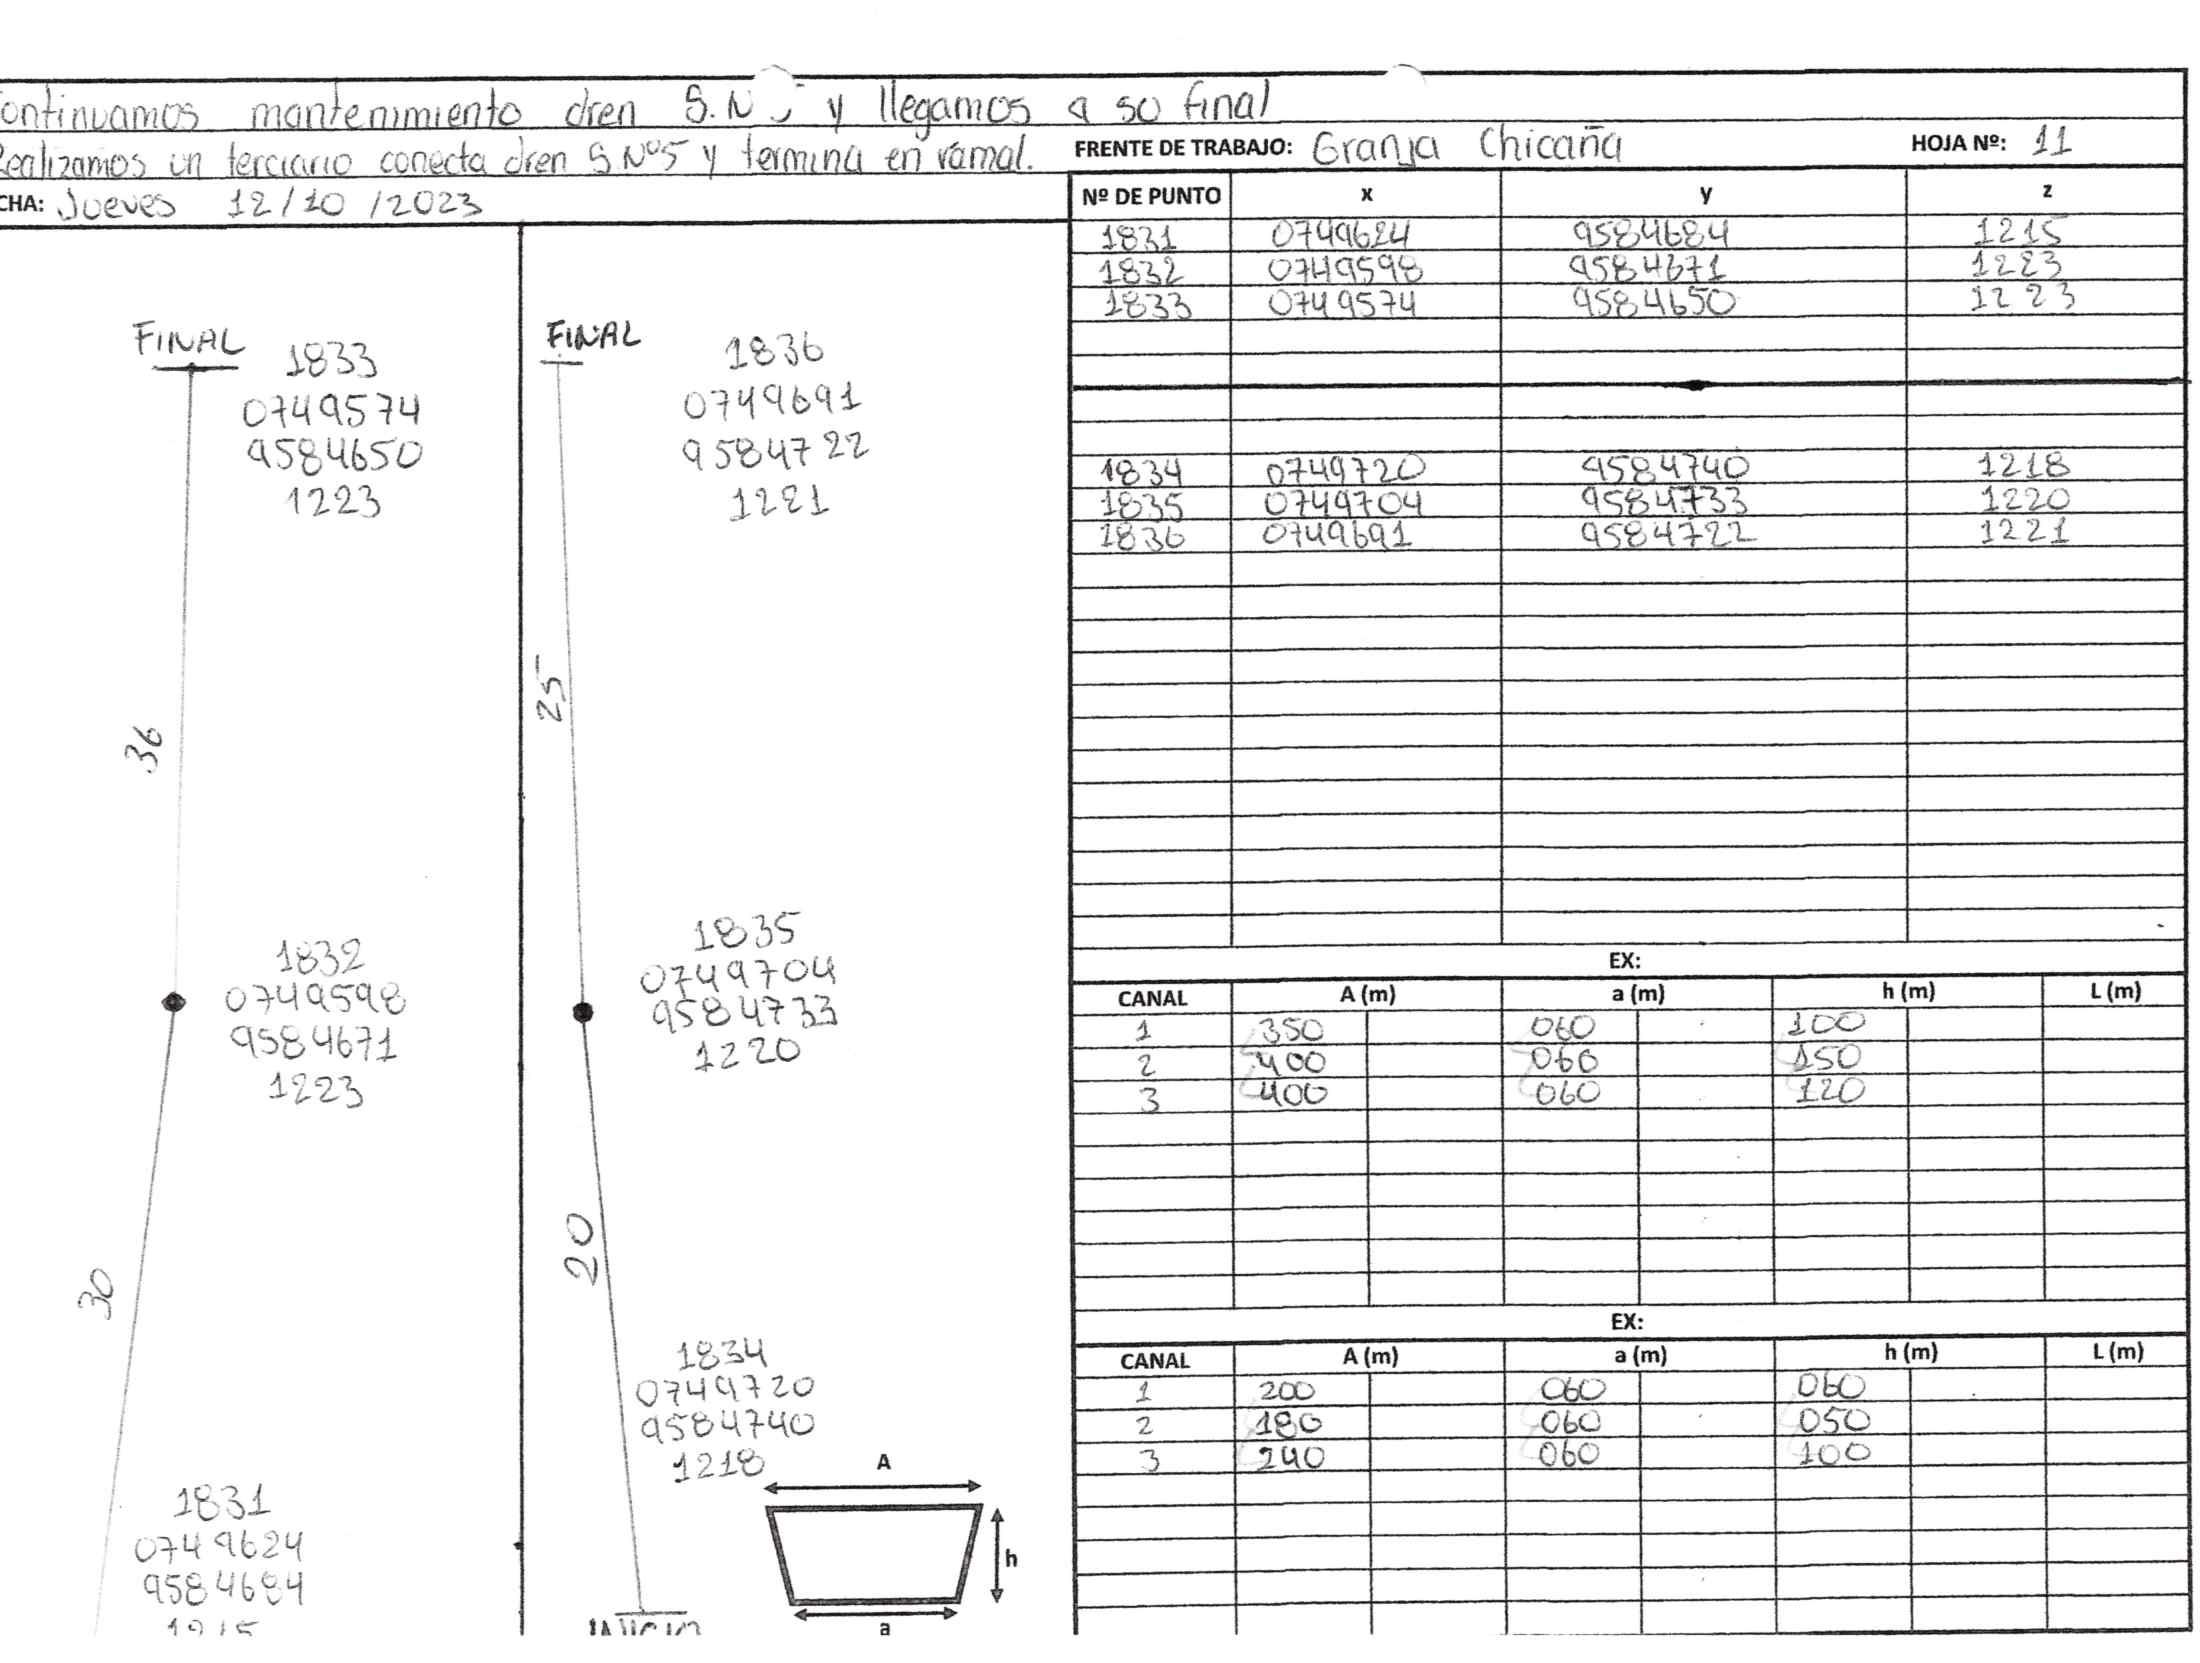 ontinuamos mantenimiento dren S.N y llegamos a so final
Realizamos un terciario conecta dren S.Nº5 y termina en ramal.
CHA: Jueves 12/10/2023
FRENTE DE TRABAJO: Granja Chicaña HOJA Nº: 11
Nº DE PUNTO x y z
1831 0749624 9584684 1215
1832 0749598 9584671 1223
1833 0749574 9584650 1223
1834 0749720 9584740 1218
1835 0749704 9584733 1220
1836 0749691 9584722 1221
FINAL
1833
0749574
9584650
1223
36
1832
0749598
9584671
1223
30
1831
0749624
9584684
1215
FINAL
1836
0749691
9584722
1221
25
1835
0749704
9584733
1220
20
1834
0749720
9584740
1218
INICIO
A
h
a
EX:
CANAL A (m) a (m) h (m) L (m)
1 350 060 100
2 400 060 150
3 400 060 120
EX:
CANAL A (m) a (m) h (m) L (m)
1 200 060 060
2 180 060 050
3 240 060 100